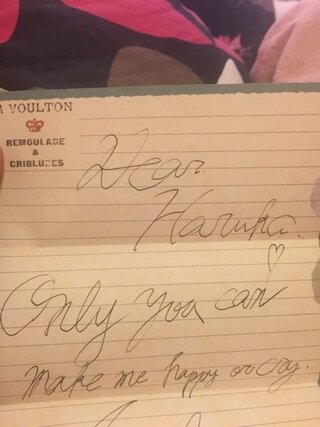 M VOULTON
REMOULAGE
&
CRIBLURES
Dear.
Haruka.
♡
Only you can
make me happy or cry.